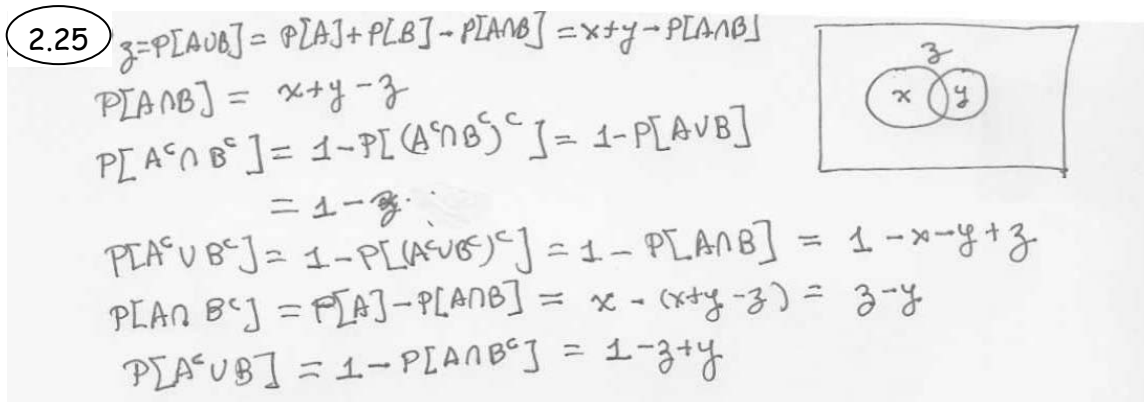 2.25 z=P[A∪B] = P[A]+P[B]-P[A∩B] = x+y-P[A∩B]
P[A∩B] = x+y-z
P[Aᶜ∩Bᶜ] = 1-P[(Aᶜ∩Bᶜ)ᶜ] = 1-P[A∪B]
= 1-z.
P[Aᶜ∪Bᶜ] = 1-P[(Aᶜ∪Bᶜ)ᶜ] = 1-P[A∩B] = 1-x-y+z
P[A∩Bᶜ] = P[A]-P[A∩B] = x-(x+y-z) = z-y
P[Aᶜ∪B] = 1-P[A∩Bᶜ] = 1-z+y
z
x y